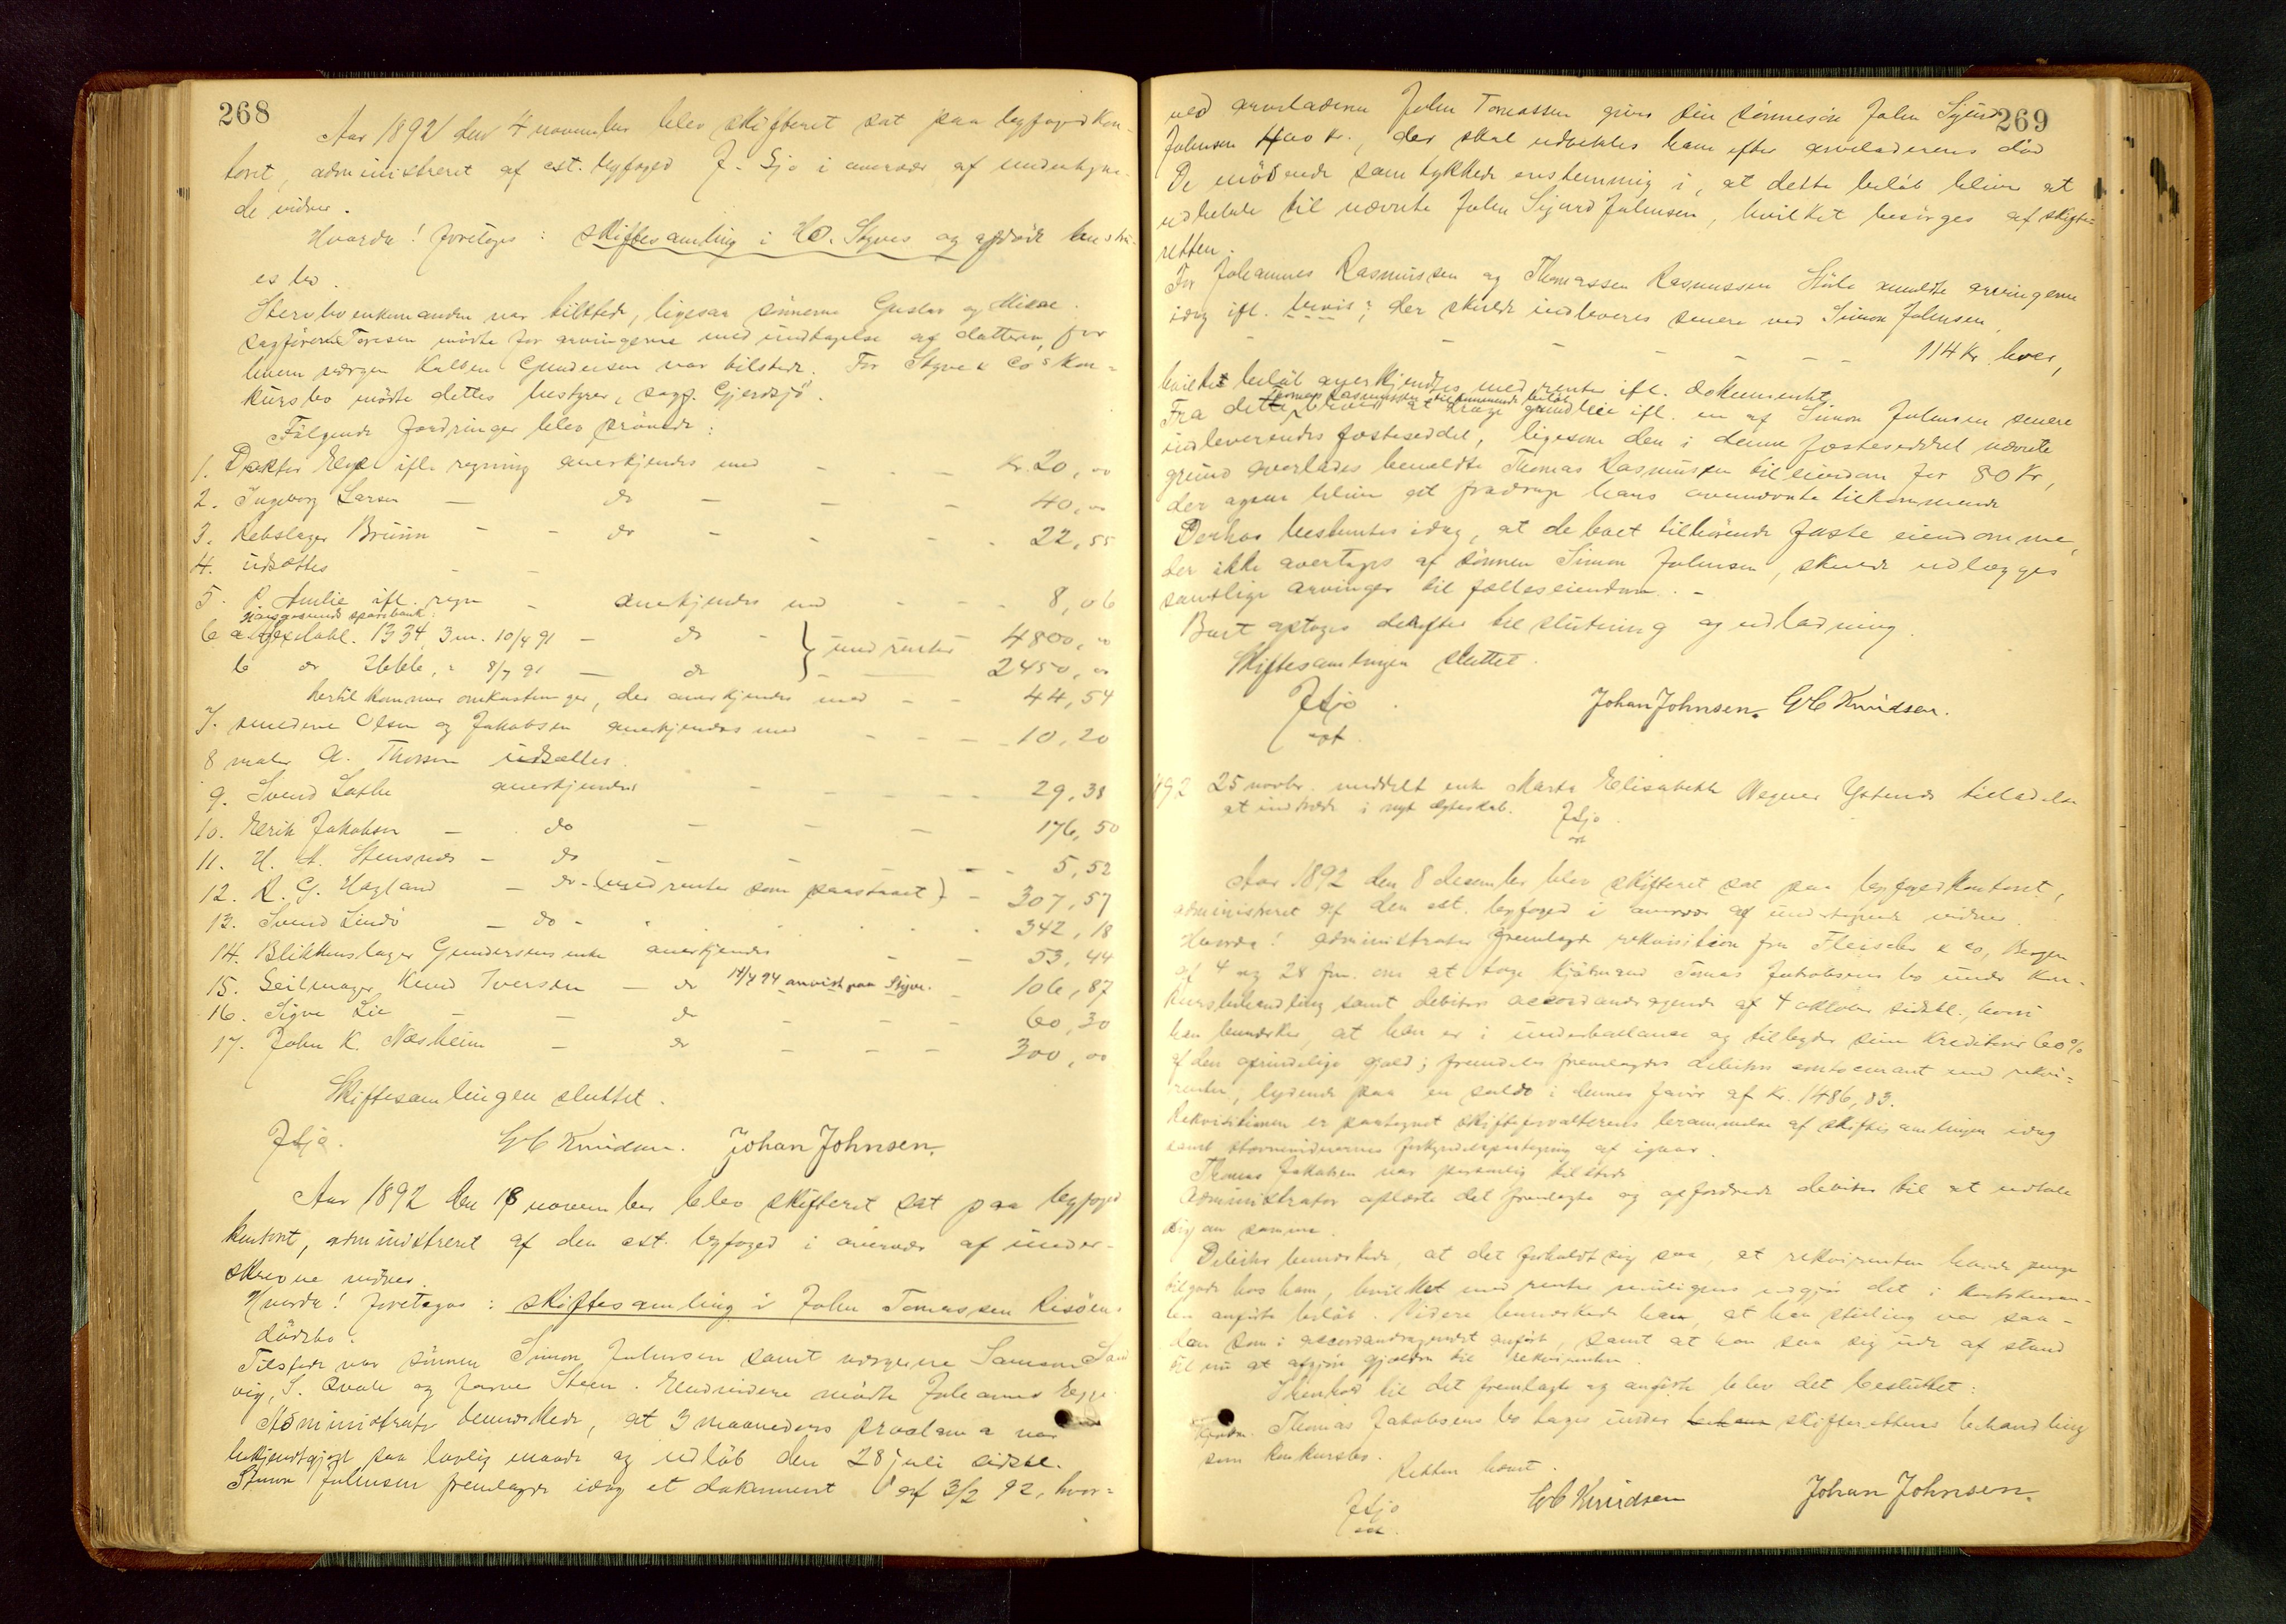 268
Aar 1892 den 4 november blev skifteret sat paa byfogedkon-
toret, administreret af cst. byfoged J. Sjo i overvær af undertegne-
de vidner.
Hvorda! foretoges: skiftesamling i H.O. Styves og afdøde hustru-
es bo.
Stervboenkemanden var tilstede, ligesaa sønnerne Gustav og
sagfører Toresen mødte for arvingerne med undtagelse af datteren, for
hvem værgen Kalsen Gundersen var tilstede. For Styve & Co's kon-
kursbo mødte dettes bestyrer, sagf. Gjerdsjø.
Følgende fordringer blev prøvede:
1. Doktor ifl. regning anerkjendes med - - - Kr. 20,00
2. Ingeborg Larsen - do - - - 40,00
3. Rebslager Brunn - - do - - - 22,55
4. udsættes - -
5. P. Amlie ifl. regn - anerkjendes med - - - 8,06
Haugesunds sparebank:
6 a. vexelobl. 1334, 3m. 10/4 91 - do - } med renter 4800,00
b do 2666, " 8/7 91 - do - 2450,00
hertil kommer omkostninger, der anerkjendes med - - 44,54
7. smedene Olsen og Jakobsen anerkjendes med - - - 10,20
8 maler A. Thorsen udsættes.
9. Svend Lothe anerkjendes - - - - 29,38
10. Erik Jakobsen - do - - - 176,50
11. H. A. Stensnes - do - - - - 5,52
12. R. G. Hagland - do - (med renter som paastaaet) - 307,57
13. Svend Lindø - do - 342,18
14. Blikkenslager Gundersens enke anerkjendes - - 53,44
15. Seilmager Knud Iversen - do 14/7 94 anvist paa Styve. - 106,87
16. Sigve Lie - - do - - - 60,30
17. John K. Næsheim - do - - - 300,00
Skiftesamlingen sluttet.
JSjo. GC Knudsen. Johan Johnsen.
Aar 1892 den 18 november blev skifteret sat paa byfoged
kontoret, administreret af den cst. byfoged i overvær af under-
skrevne vidner.
Hvorda! foretoges: skiftesamling i John Tomassen Risøens
dødsbo.
Tilstede var sønnen Simon Johnsen samt værgerne Samson Sand
vig, S. Qvale og Steen. Endvidere mødte Johannes
Administrator bemærkede, at 3 maaneders proclama var
bekjendtgjort paa lovlig maade og udløb den 28 juli sidstl.
Simon Johnsen fremlagde idag et dokument af 3/2 92, hvor-
269
ved arveladeren John Tomassen giver sin sønnesøn John Sigurd
Johnsen 400 kr., der skal udbetales ham efter arveladerens død
De mødende samtykkede enstemmig i, at dette beløb bliver at
udbetale til nævnte John Sigurd Johnsen, hvilket besørges af skifte-
retten.
For Johannes Rasmussen og Thomassen Rasmussen anmeldte arvingerne
idag ifl. bevis, der skulde indleveres senere ved Simon Johnsen,
- - - - - - - 114 Kr. hver,
hvilket beløb anerkjendtes med renter ifl. dokumentet.
Tomas Rasmussen tilkommende beløb
Fra dette bliver at drage grundleie ifl. en af Simon Johnsen senere
indleverendes fæsteseddel, ligesom den i denne fæsteseddel nævnte
grund overlades bemeldte Thomas Rasmussen til eiendom for 80 Kr,
der ogsaa bliver at fradrage hans ovennævnte tilkommende
Derhos bestemtes idag, at de boet tilhørende faste eiendomme,
der ikke overtages af sønnen Simon Johnsen, skulde udlægges
samtlige arvinger til fælleseiendom. -
Boet optages derefter til slutning og udlodning.
Skiftesamlingen sluttet.
JSjo. Johan Johnsen. GC Knudsen.
cst.
1892 25 novbr. meddelt enke Marta Elisabeth Wegner tilladelse
at indtræde i nyt ægteskab. JSjo
cst
Aar 1892 den 8 december blev skifteret sat paa byfogedkontoret,
administreret af den cst. byfoged i overvær af undertegnede vidner.
Hvorda! Administrator fremlagde rekvisition fra Fleischer & Co, Bergen
af 4 og 28 f.m. om at tage kjøbmand Tomas Jakobsens bo under kon-
kursbehandling samt debitors accordandragende af 4 oktober sidstl., hvori
han bemærker, at han er i underballance og tilbyder sine kreditorer 60%
af den oprindelige gjæld; fremdeles fremlagdes debitors contocurant med rekvi-
renten, lydende paa en saldo i dennes favør af Kr. 1486,83.
Rekvisitionen er paategnet skifteforvalterens berammelse af skiftesamlingen idag
samt stævnevidnernes forkyndelsespaategning af igaar.
Thomas Jakobsen var personlig tilstede
Administrator oplæste det fremlagte og opfordrede debitor til at udtale
sig om samme.
Debitor bemærkede, at det forholdt sig saa, at rekvirenten havde penge
tilgode hos ham, hvilket med renter muligens udgjør det i kontokuran-
ten anførte beløb. Videre bemærkede han, at hans stilling var saa-
dan som i accordandragendet anført, samt at han saa sig ude af stand
til nu at afgjøre gjælden til rekvirenten.
I henhold til det fremlagte og anførte blev det besluttet:
Kjøbm. Thomas Jakobsens bo tages under skifterettens behandling
som konkursbo.
Retten hævet.
JSjo GC Knudsen Johan Johnsen.
cst.